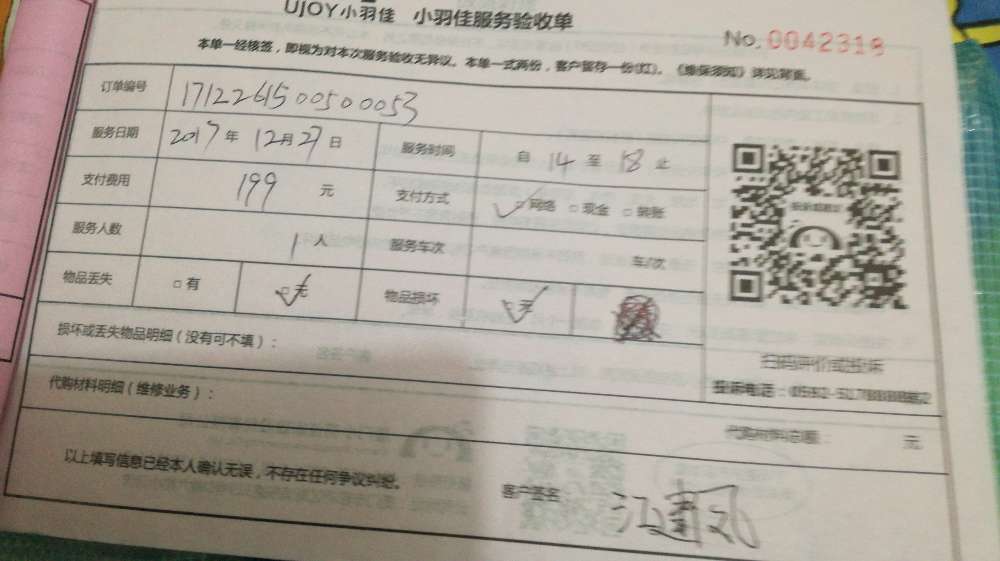 UJOY小羽佳 小羽佳服务验收单
No. 0042318
本单一经核签，即视为对本次服务验收无异议。本单一式两份，客户留存一份(红)。《维保须知》详见背面。
订单编号 171226150050053
服务日期 2017年12月27日 服务时间 自 14 至 18 止
支付费用 199 元 支付方式 ☑网络 □现金 □转账
服务人数 1人 服务车次 车/次
物品丢失 □有 ☑无 物品损坏 ☑无
损坏或丢失物品明细（没有可不填）：
扫码评价或投诉
投诉电话：
代购材料明细（维修业务）：
代购材料总额： 元
以上填写信息已经本人确认无误，不存在任何争议纠纷。
客户签名